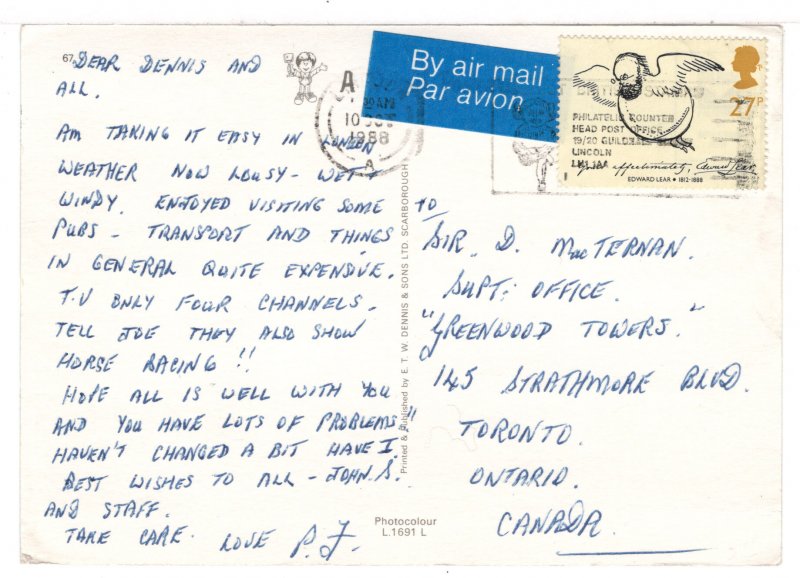 67
DEAR DENNIS AND
ALL.
AM TAKING IT EASY IN LONDON
WEATHER NOW LOUSY - WET &
WINDY. ENJOYED VISITING SOME
PUBS - TRANSPORT AND THINGS
IN GENERAL QUITE EXPENSIVE.
T.V ONLY FOUR CHANNELS.
TELL JOE THEY ALSO SHOW
HORSE RACING !!
HOPE ALL IS WELL WITH YOU
AND YOU HAVE LOTS OF PROBLEMS!!
HAVEN'T CHANGED A BIT HAVE I.
BEST WISHES TO ALL - JOHN. S.
AND STAFF.
TAKE CARE. LOVE P. J.
Printed & Published by E. T. W. DENNIS & SONS LTD. SCARBOROUGH
Photocolour
L.1691 L
By air mail
Par avion
A
AM
10 OCT
1988
A
PHILATELIC COUNTER
HEAD POST OFFICE
19/20 GUILDHALL
LINCOLN
LN1 1AA
27P
Edward Lear
EDWARD LEAR • 1812-1888
TO
SIR. D. MacTERNAN.
SUPT: OFFICE.
"GREENWOOD TOWERS."
145 STRATHMORE BLVD.
TORONTO.
ONTARIO.
CANADA